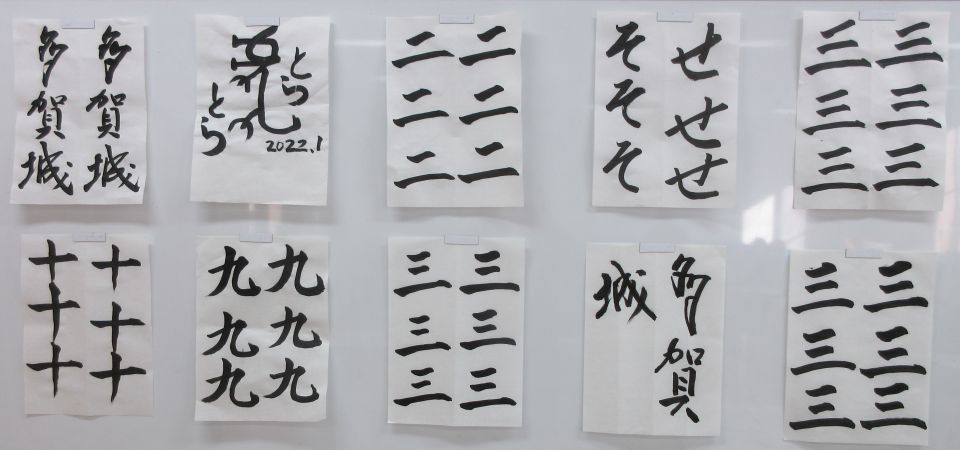 多賀城
多賀城
とら
とら
2022.1
二二二
二二二
せせせ
そそそ
三三三
三三三
十十十
十十十
九九九
九九九
三三三
三三三
多賀
城
三三三
三三三